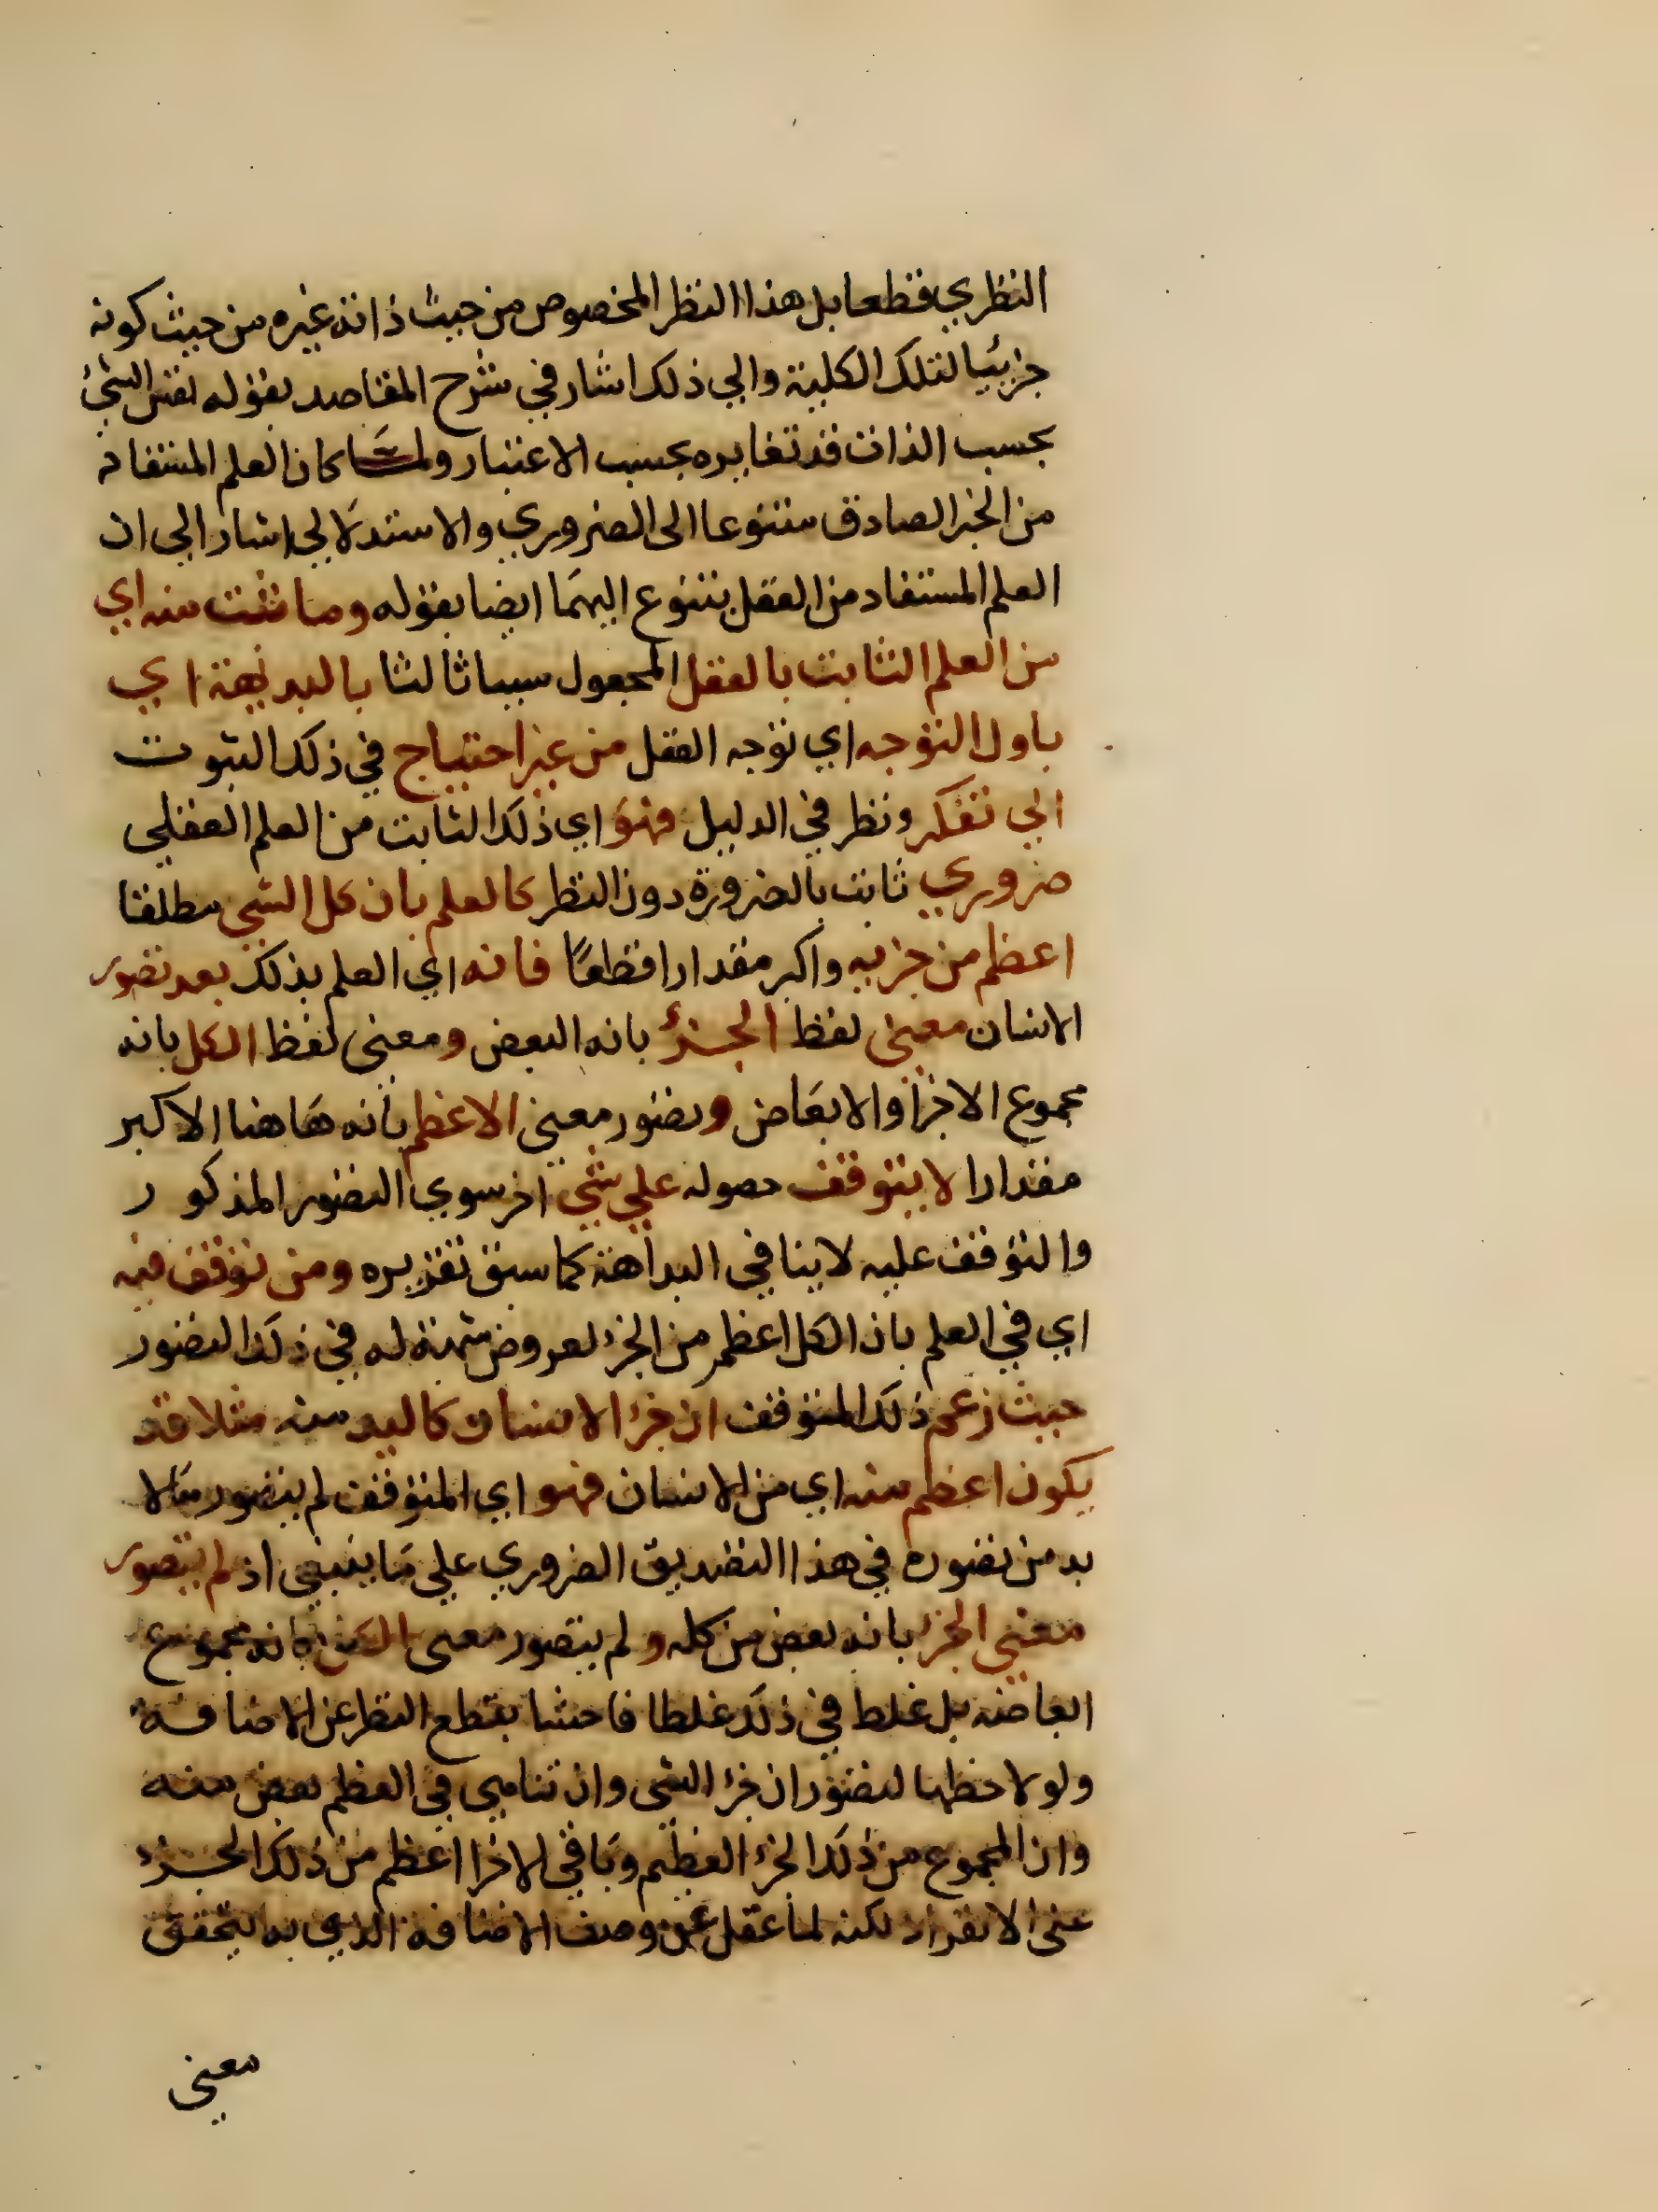 النظري قطعا بل هذا النظر المخصوص من حيث ذاته غيره من حيث كونه
جزئيا لتلك الكلية والي ذلك اشار في شرح المقاصد بقوله نفس الشئ
بحسب الذات قد تغايره بحسب الاعتبار ولما كان العلم المستفاد
من الخبر الصادق متنوعا الى الضروري والاستدلالي اشار الي ان
العلم المستفاد من العقل يتنوع اليهما ايضا بقوله وما ثبت منه اي
من العلم الثابت بالعقل المجعول سببا ثالثا بالبديهة اي
باول التوجه اي توجه العقل من غير احتياج في ذلك الثبوت
الي تفكر ونظر في الدليل فهو اي ذلك الثابت من العلم العقلي
ضروري ثابت بالضرورة دون النظر كالعلم بان كل الشي مطلقا
اعظم من جزيه واكبر مقدارا قطعًا فانه اي العلم بذلك بعد تصور
الانسان معنى لفظ الجزؤ بانه البعض ومعنى لفظ الكل بانه
مجموع الاجزا والابعاض وتصور معنى الاعظم بانه هاهنا الاكبر
مقدارا لا يتوقف حصوله علي شي اخر سوي التصور المذكور
والتوقف عليه لاينافي البداهة كما سبق تقريره ومن توقف فيه
اي في العلم بان الكل اعظم من الجزء لعروض شبهة له في ذلك التصور
حيث زعم ذلك المتوقف ان جزء الانسان كاليد منه مثلا قد
يكون اعظم منه اي من الانسان فهو اي المتوقف لم يتصور مالا
بد من تصوره في هذا التصديق الضروري علي ما ينبغي اذ لم يتصور
معني الجزء بانه بعض من كله ولم يتصور معنى الكل بانه مجموع
ابعاضه بل غلط في ذلك غلطا فاحشا بقطع النظر عن الاضافة
ولو لاحظها لتصور ان جزء الشي وان تناهي في العظم بعض منه
وان المجموع من ذلك الجزء العظيم وباقي الاجزا اعظم من ذلك الجزء
عنى الانفراد لكنه لما غفل عن وصف الاضافة الذي به يتحقق
معنى